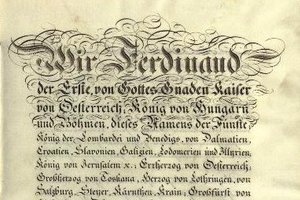 Wir Ferdinand
der Erste, von Gottes Gnaden Kaiser
von Oesterreich, König von Hungarn
und Böhmen, dieses Namens der Fünfte
König der Lombardei und Venedigs, von Dalmatien,
Croatien, Slavonien, Galizien, Lodomerien und Illyrien,
König von Jerusalem &c.; Erzherzog von Oesterreich;
Großherzog von Toskana; Herzog von Lothringen, von
Salzburg, Steyer, Kärnthen, Krain; Großfürst von